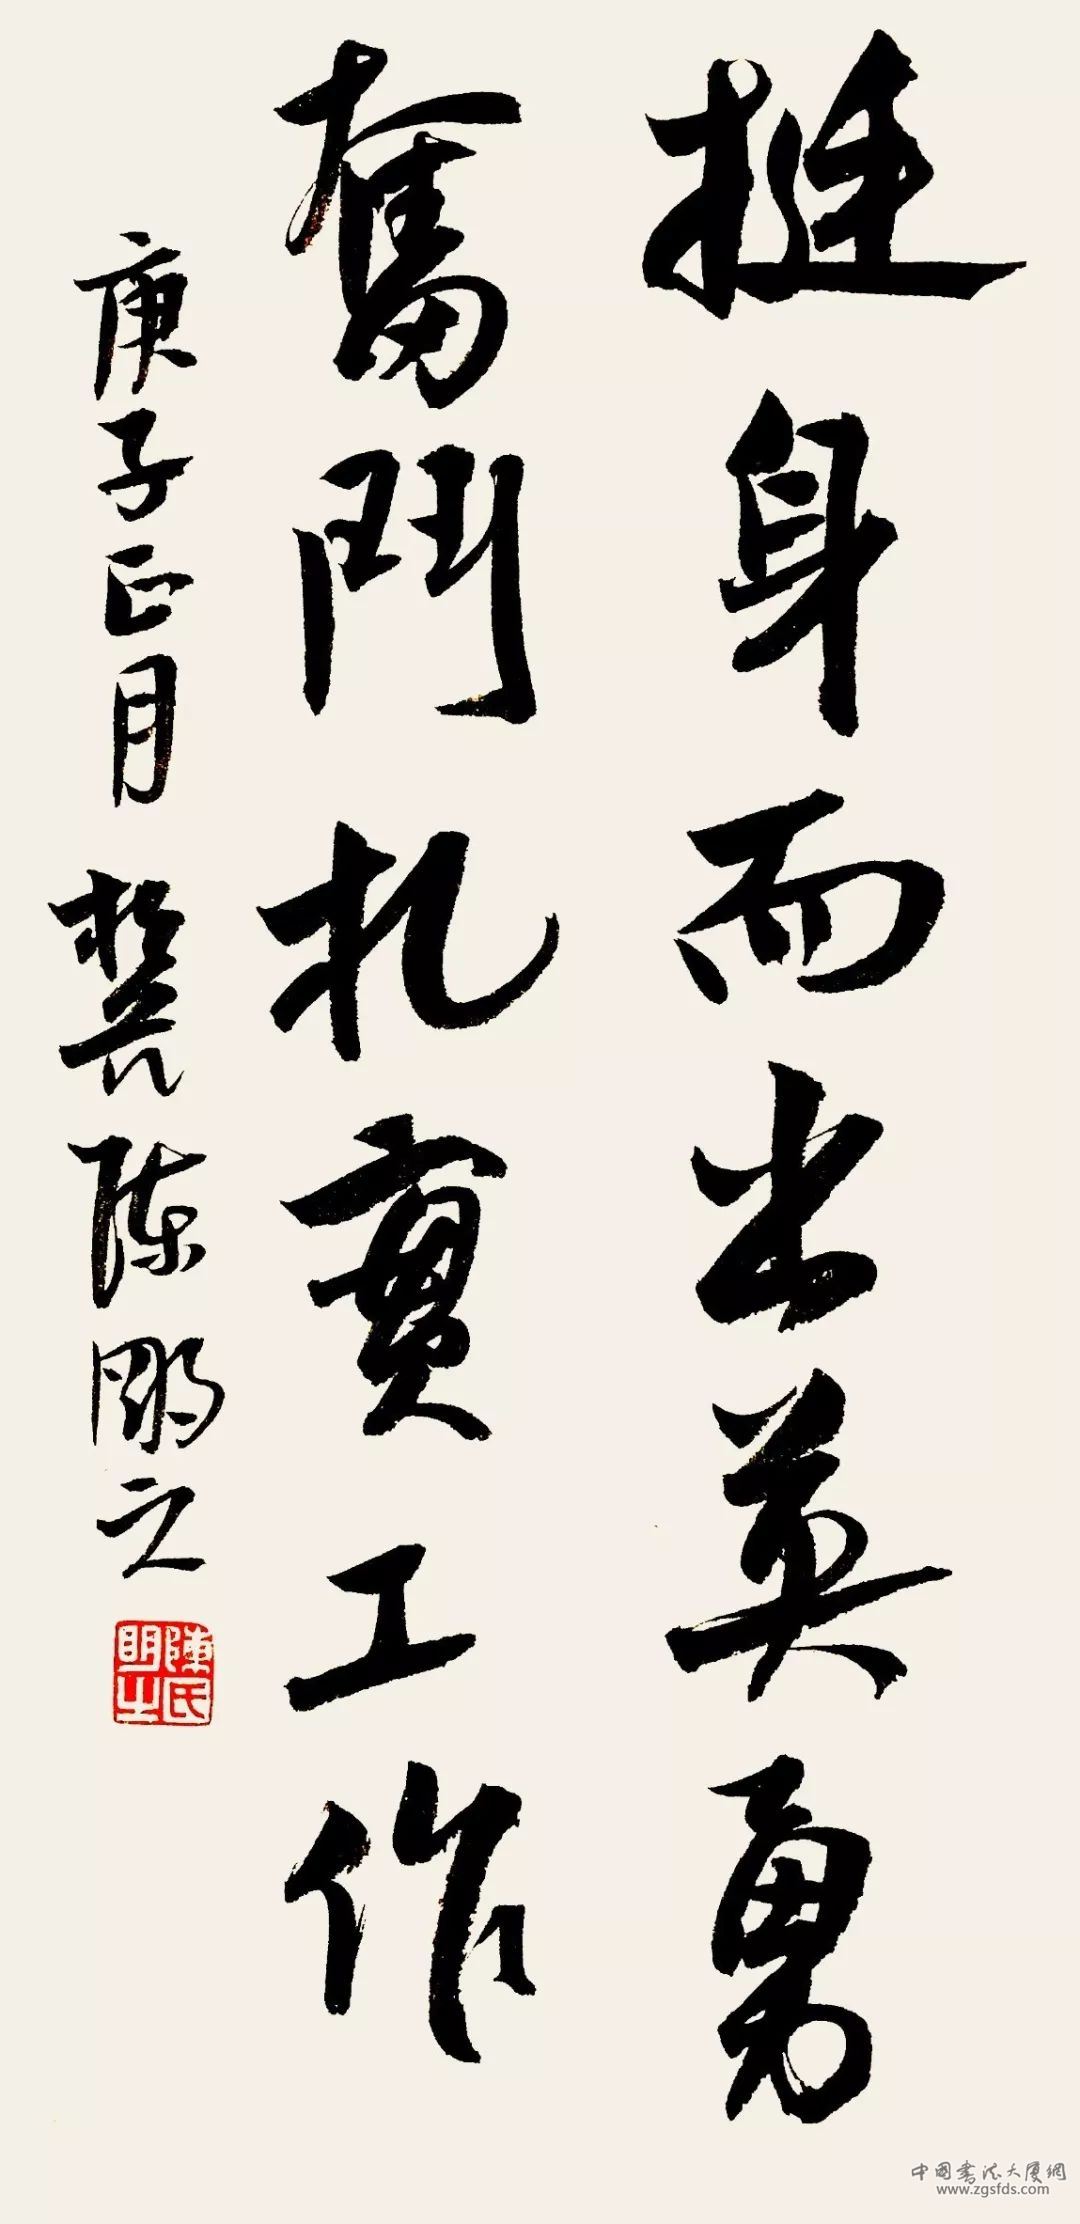 挺身而出英勇
奮鬥扎實工作
庚子正月 陳朙之
陳氏明之
中國書法大厦網
www.zgsfds.com